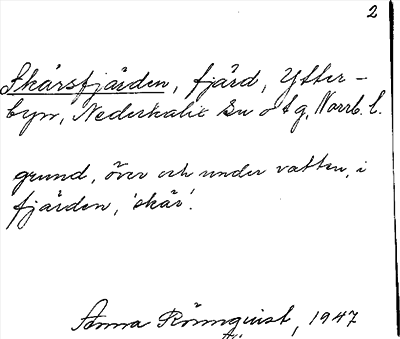 2
Skärsfjärden, fjärd, Ytter-
byn, Nederkalix sn o tg, Norrb. l.
grund, över och under vatten, i
fjärden, 'skär'.
Anna Rönnquist, 1947